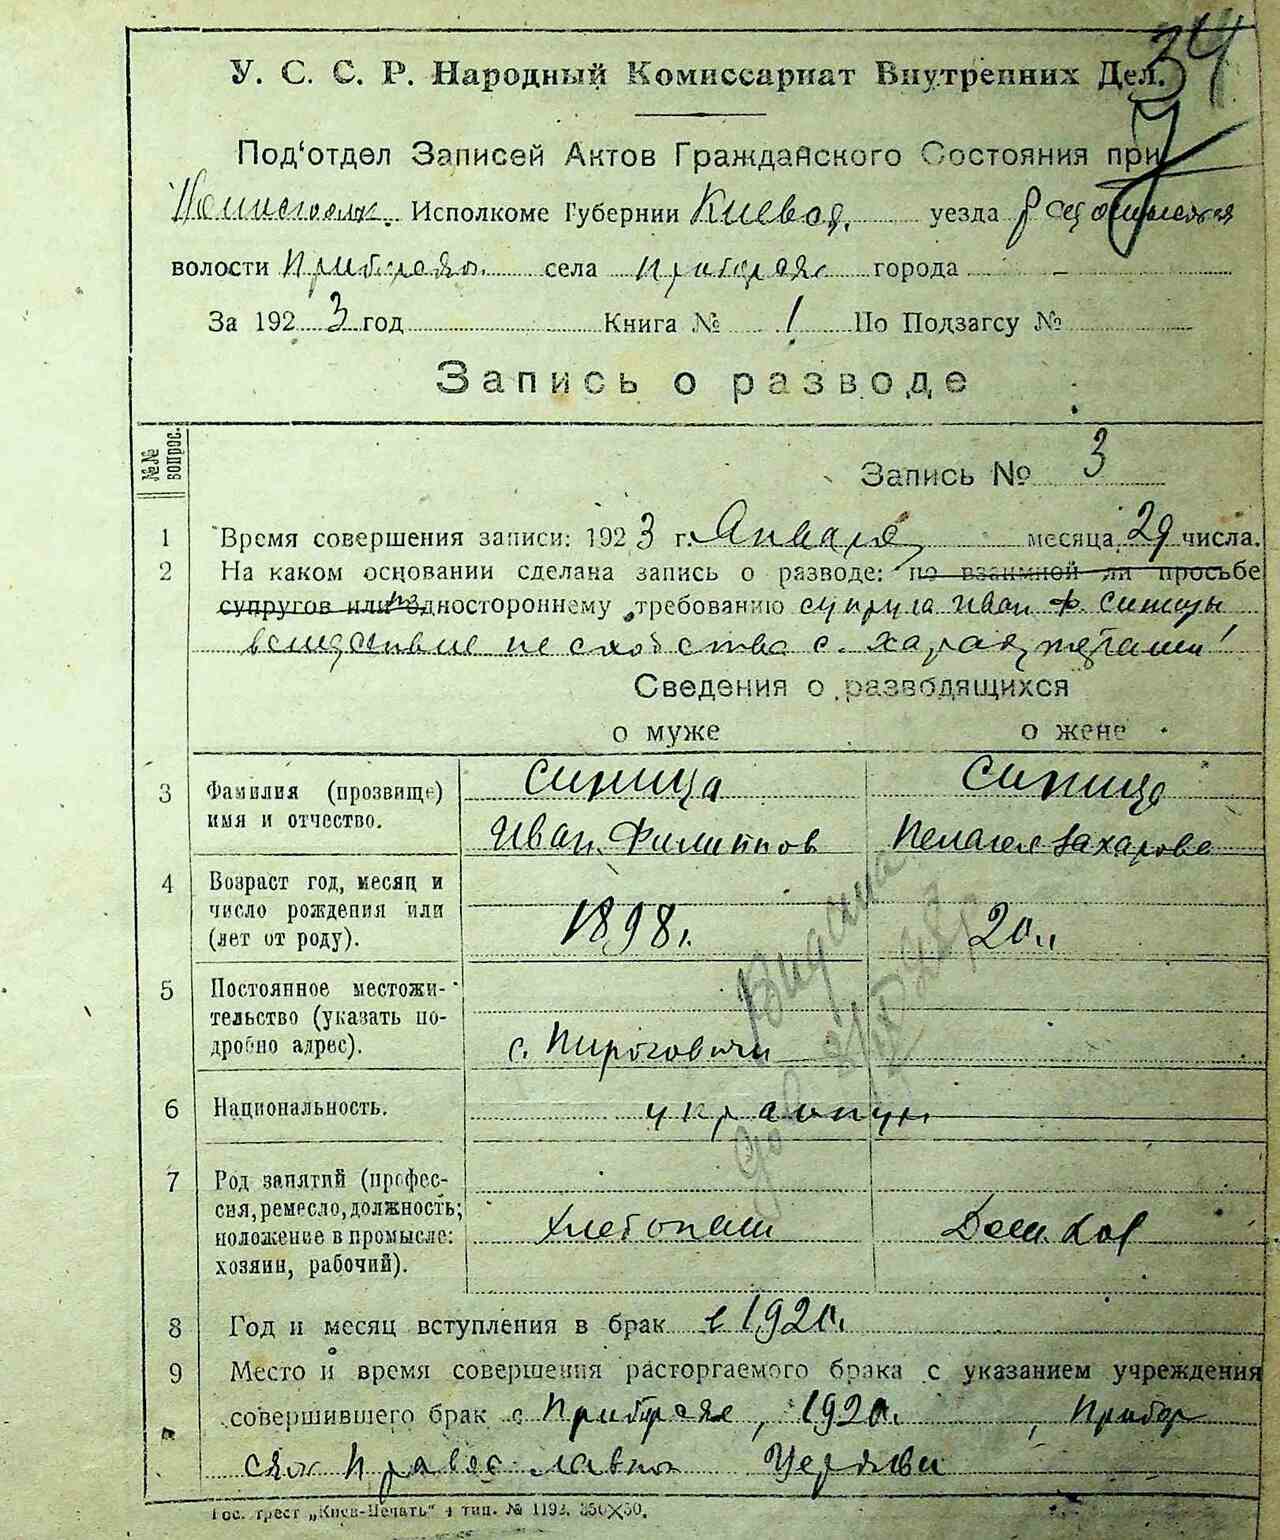 34
У. С. С. Р. Народный Комиссариат Внутренних Дел.
Под'отдел Записей Актов Гражданского Состояния при
Исполкоме Губернии Киевск. уезда
волости Приборск. села Приборск города –
За 1923 год Книга № 1 По Подзагсу №
Запись о разводе
№№ вопрос.
Запись № 3
1 Время совершения записи: 1923 г. Января месяца 29 числа.
2 На каком основании сделана запись о разводе: по взаимной ли просьбе
супругов или одностороннему требованию супруга Иван Ф. Синицы
вследствие не сходства с. характерами!
Сведения о разводящихся
о муже о жене
3 Фамилия (прозвище) имя и отчество.
Синица Синица
Иван Филиппов Пелагея Захарова
4 Возраст год, месяц и число рождения или (лет от роду).
1898 г. 20 л.
5 Постоянное местожительство (указать подробно адрес).
с. Пироговичи
6 Национальность.
украинцы
7 Род занятий (профессия, ремесло, должность; положение в промысле: хозяин, рабочий).
Хлебопаш Дом. хоз
Выдана
8 Год и месяц вступления в брак в 1920 г.
9 Место и время совершения расторгаемого брака с указанием учреждения
совершившего брак с Приборске, 1920 г., Прибор
ская Православной Церкви
Гос. трест „Киев-Печать“ 4 тип. № 1193. 350×50.